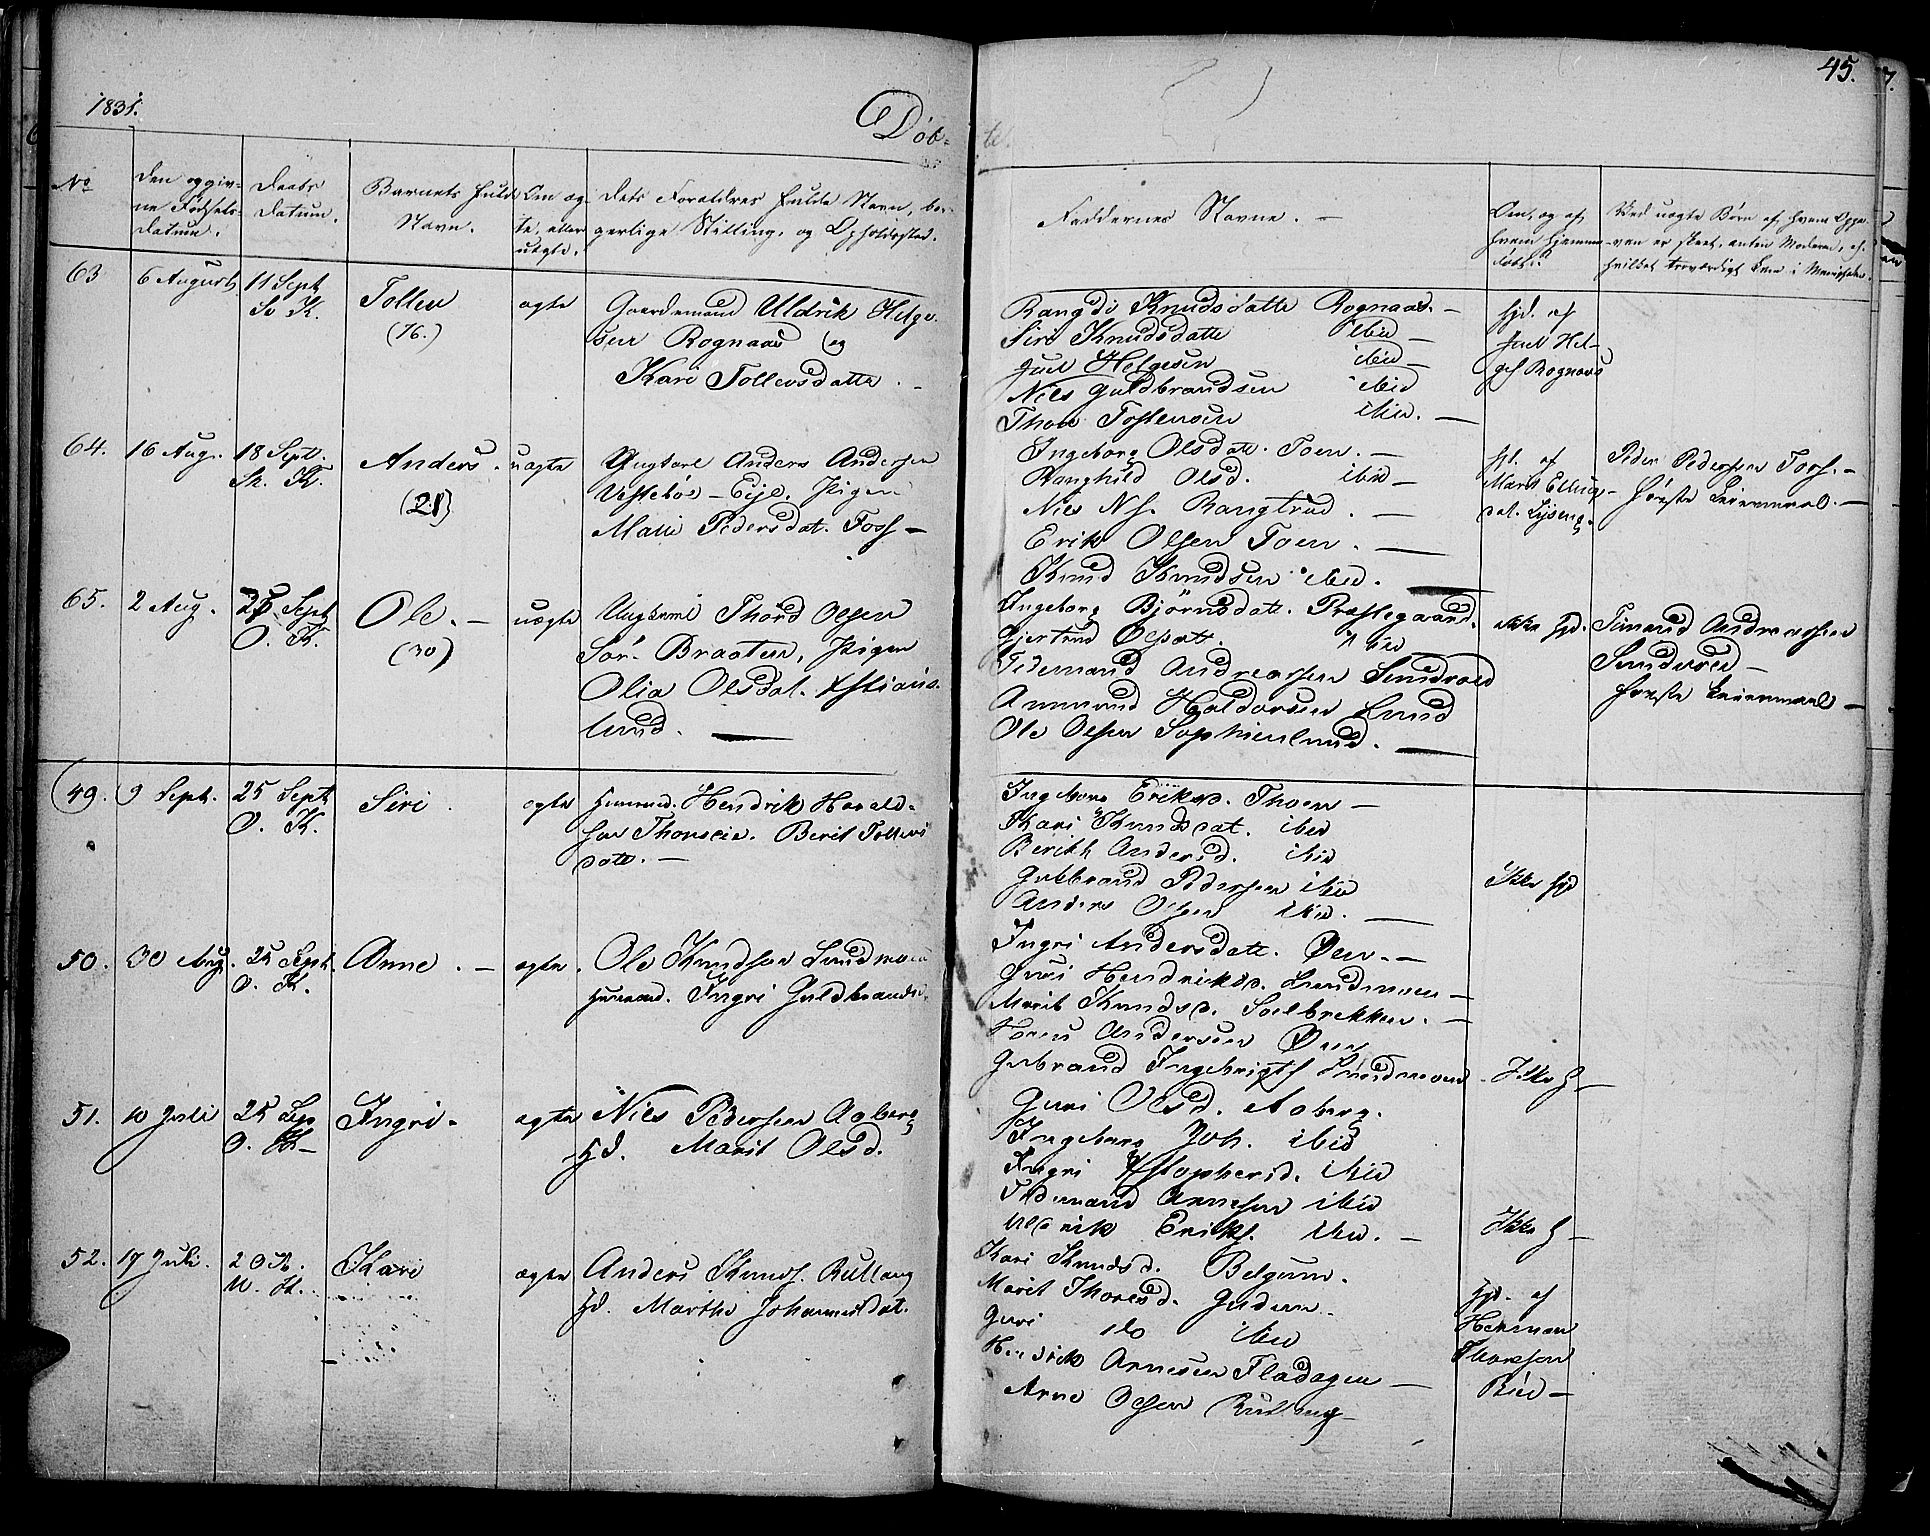 1831.
Døb-
te.
45.
No
Den opgiv-
ne Fødsels-
Datum.
Daabs
Datum.
Barnets fulde
Navn.
Om æg-
te, eller
uægte.
Dets Forældres fulde Navn, bor-
gerlige Stilling, og Opholdssted.
Faddernes Navne. —
Om, og af
hvem hjemme-
døbt.
Ved uægte Børn af hvem Opga-
ven er skeet, enten Moderen, el.
63
6 August
11 Sept
Tollev
(16.)
ægte
Gaardmand Uldrik Helge-
sen Rognaas og
Kari Tollevsdatter. —
Rangdi Knudsdatte Rognaas. —
Siri Knudsdatte ibid —
Juel Helgesen ibid —
Nils Guldbrandsen ibid
Thor Tostensen ibid. —
hjd. af
Juel Hel-
ges Rognaas
64.
16 Aug.
18 Sept.
Anders.
(21)
uægte
Ungkarl Anders Andersen
Vestebøe - Eje. Pigen
Mari Pedersdat. Foss —
Ingeborg Olsdat. Toen. —
Ranghild Olsd. ibid —
Nils Ns. Rangtrud. —
Erik Olsen Toen. —
Knud Knudsen ibid. —
hj. af
Marit Elling-
dat.
Peder Pedersen Foss. —
første Leiermaal. —
65.
2 Aug.
25 Sept
O. K.
Ole. —
(30)
uægte
Ungkarl Thord Olsen
Sør-Braaten, Pigen
Olia Olsdat. Xstians-
lund. —
Ingeborg Bjørnsdatt. Præstegaard.
Gjertrud Olsdatt. ibid
Tidemand Andreassen Sundvold
Ammund Haldorsen Lund
Ole Olsen Sophienlund. —
ikke hjd.
Timand Andreassen
Sundvold —
første Leiermaal —
49.
9 Sept.
25 Sept
O. K.
Siri.
ægte
Huusmd. Hendrik Harald-
sen Thonseie. Berit Tollevs
datt. —
Ingeborg Eriksd. Thoen —
Kari Knudsdat. ibid
Berith Andersd. ibid
Gulbrand Pedersen ibid
Anders Olsen ibid. —
Ikke hjd
50.
30 Aug.
25 Sept
O. K.
Anne. —
ægte.
Ole Knudsen Sundmoen
Huusmd. Ingri Guldbrandsd.
Ingri Andersdatt. Øen. —
Guri Hendriksd. Sundmoen —
Marit Knudsd. Solbrekken. —
Andersen Øen
Gulbrand Ingebrigts Sundmoen
Ikke H —
51.
10 Juli
25 Sep
O. K. —
Ingri.
ægte
Niels Pedersen Aaberg
Hd. Marit Olsd.
Guri Olsd. Aaberg.
Ingeborg Joh. ibid
Ingri Xstophersd. ibid
Tidemand Arnesen ibid
Uldrik Eriks. ibid. —
Ikke H —
52.
17 Juli.
2 Oct.
U. K.
Kari
ægte
Anders Knuds. Rustang
Hd. Marthe Johannesdat.
Kari Knudsd. Belgum.
Marit Thoresd. Guldern.
Guri do ibid
Hendrik Arnesen Fladagen —
Arne Olsen
hjd. af
Herman
Thoresen
Bue —